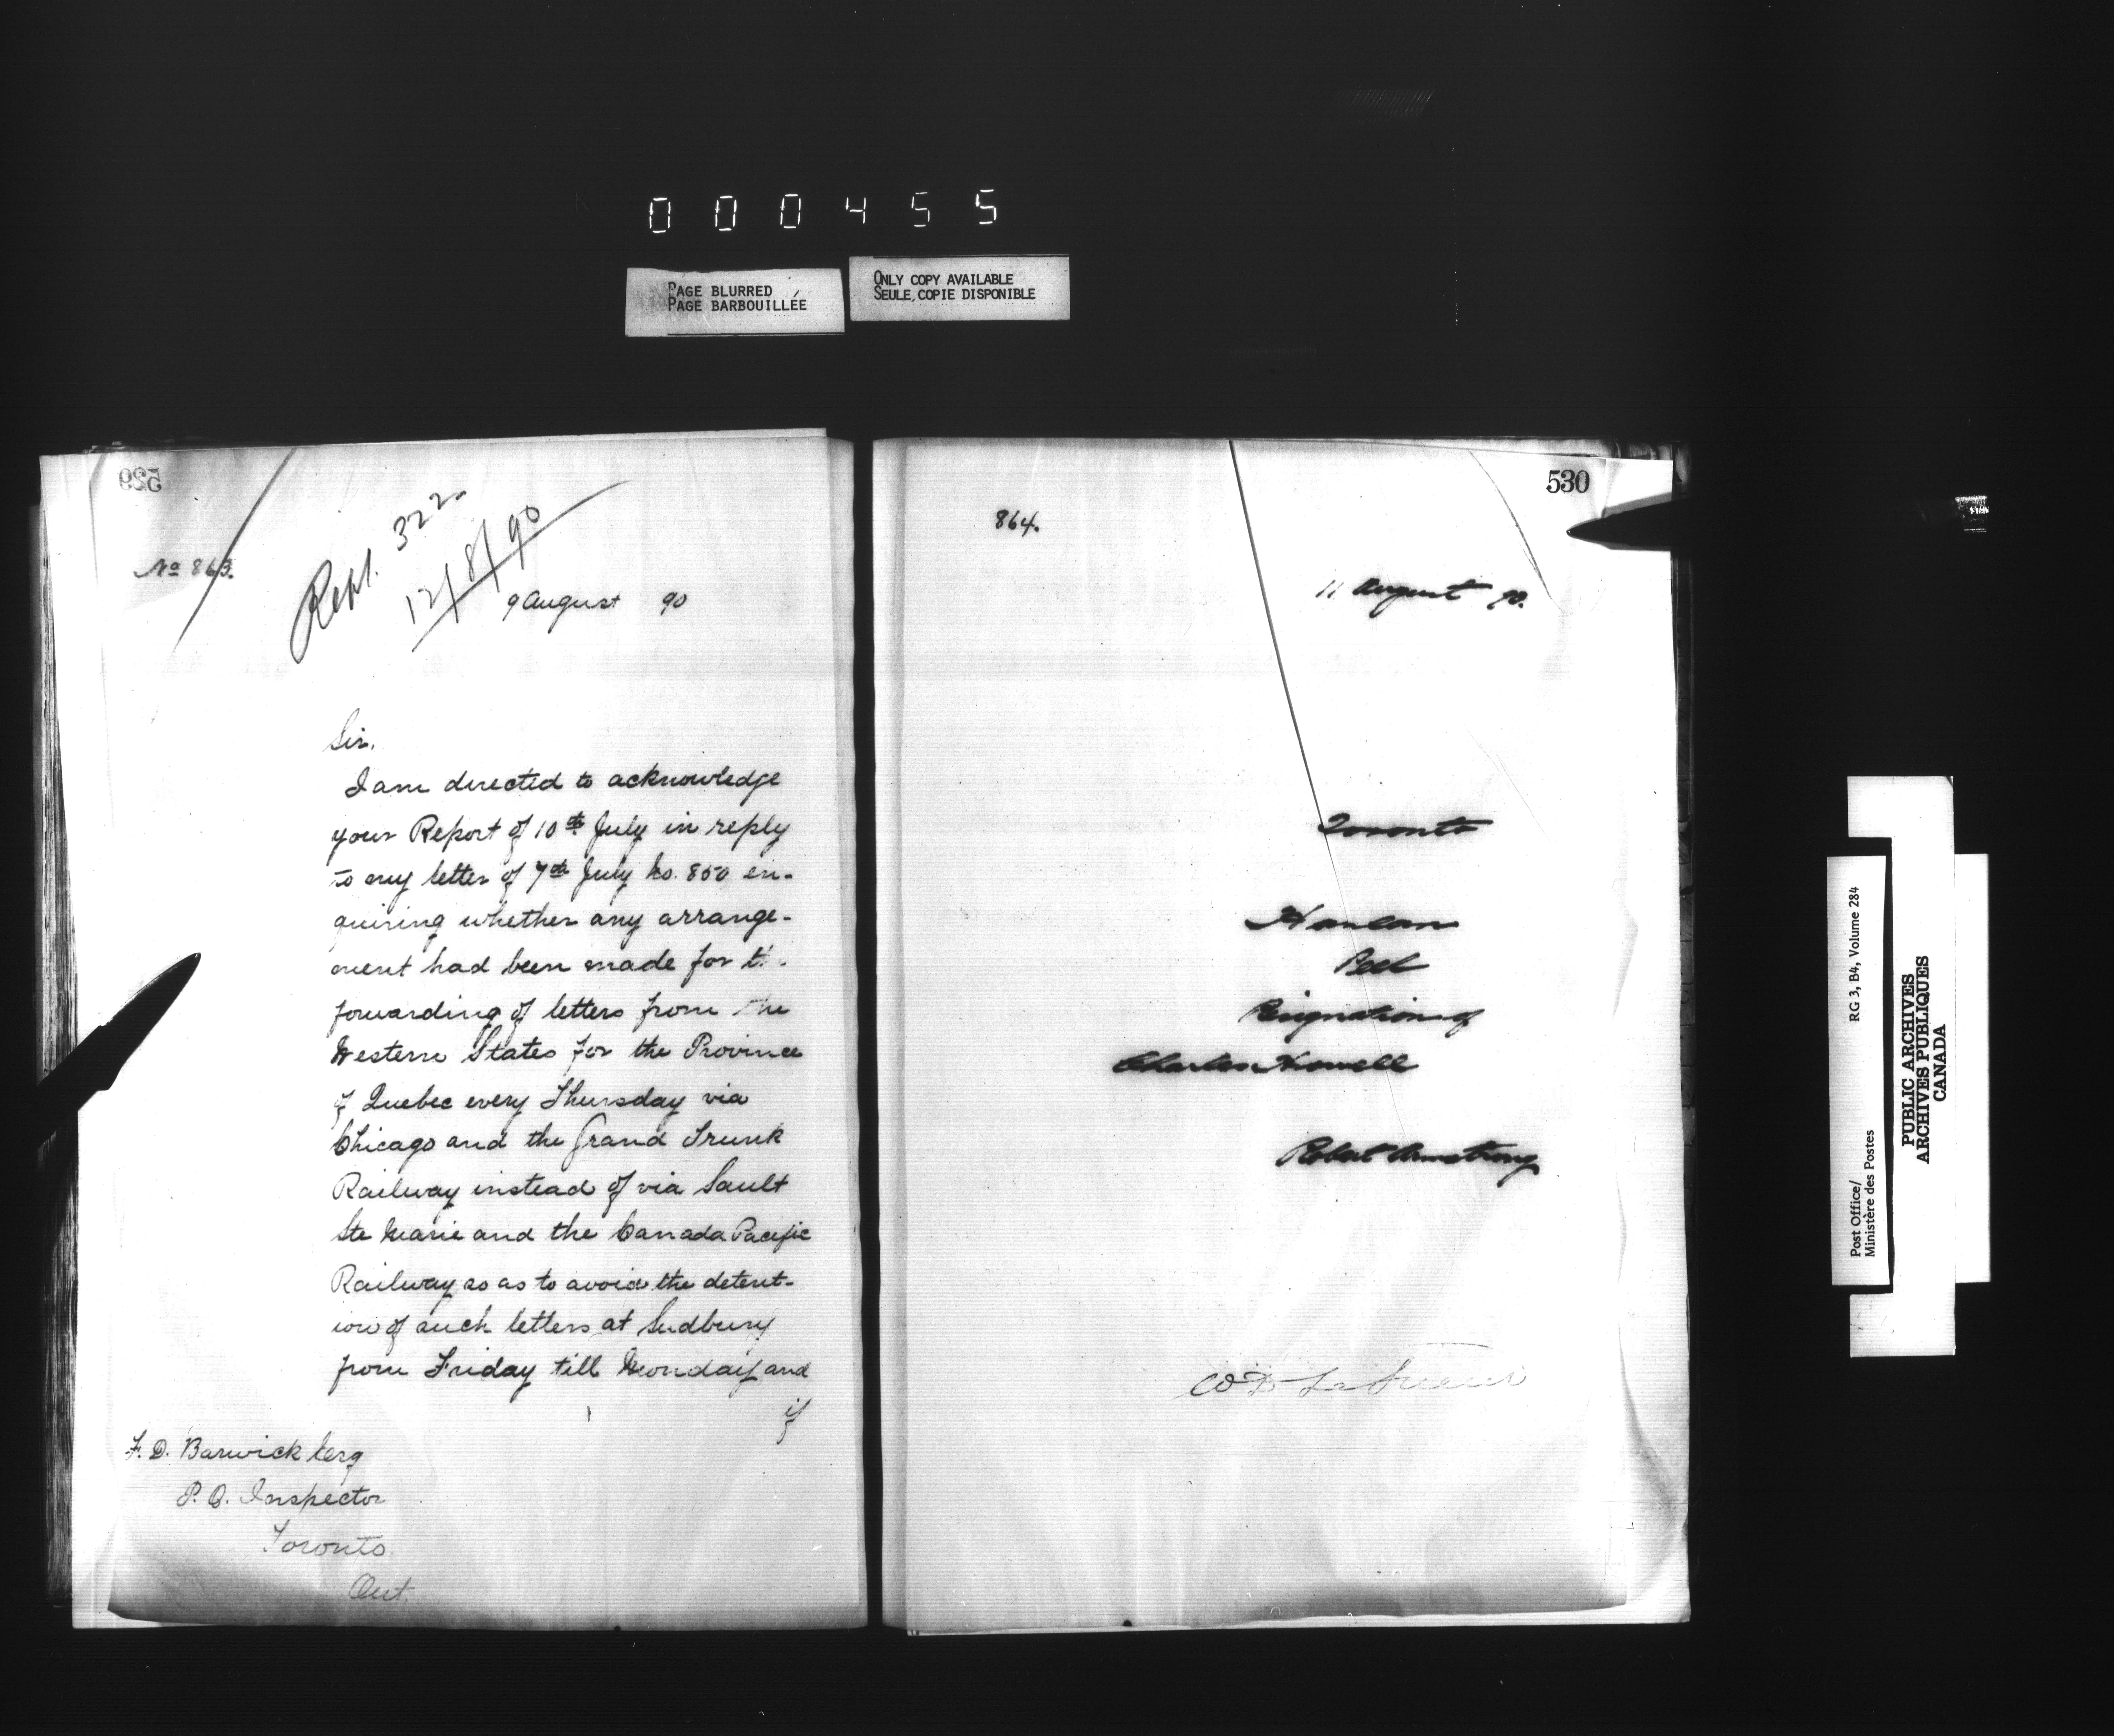 000455
PAGE BLURRED
PAGE BARBOUILLÉE
ONLY COPY AVAILABLE
SEULE COPIE DISPONIBLE
529
No 863.
Repl. 322
12/8/90
9 August 90
Sir,
I am directed to acknowledge
your Report of 10th July in reply
to my letter of 7th July No. 850 en-
quiring whether any arrange-
ment had been made for th
forwarding of letters from the
Western States for the Province
of Quebec every Thursday via
Chicago and the Grand Trunk
Railway instead of via Sault
Ste Marie and the Canada Pacific
Railway so as to avoid the detent-
ion of such letters at Sudbury
from Friday till Monday and
if
F. D. Barwick Esq
P. O. Inspector
Toronto
Ont.
530
864.
11 August 90.
Toronto
Hanlan
Peel
Resignation of
Charles Howell
Robert Armstrong
W D LeSueur
Post Office/ RG 3, B4, Volume 284
Ministère des Postes
PUBLIC ARCHIVES
ARCHIVES PUBLIQUES
CANADA